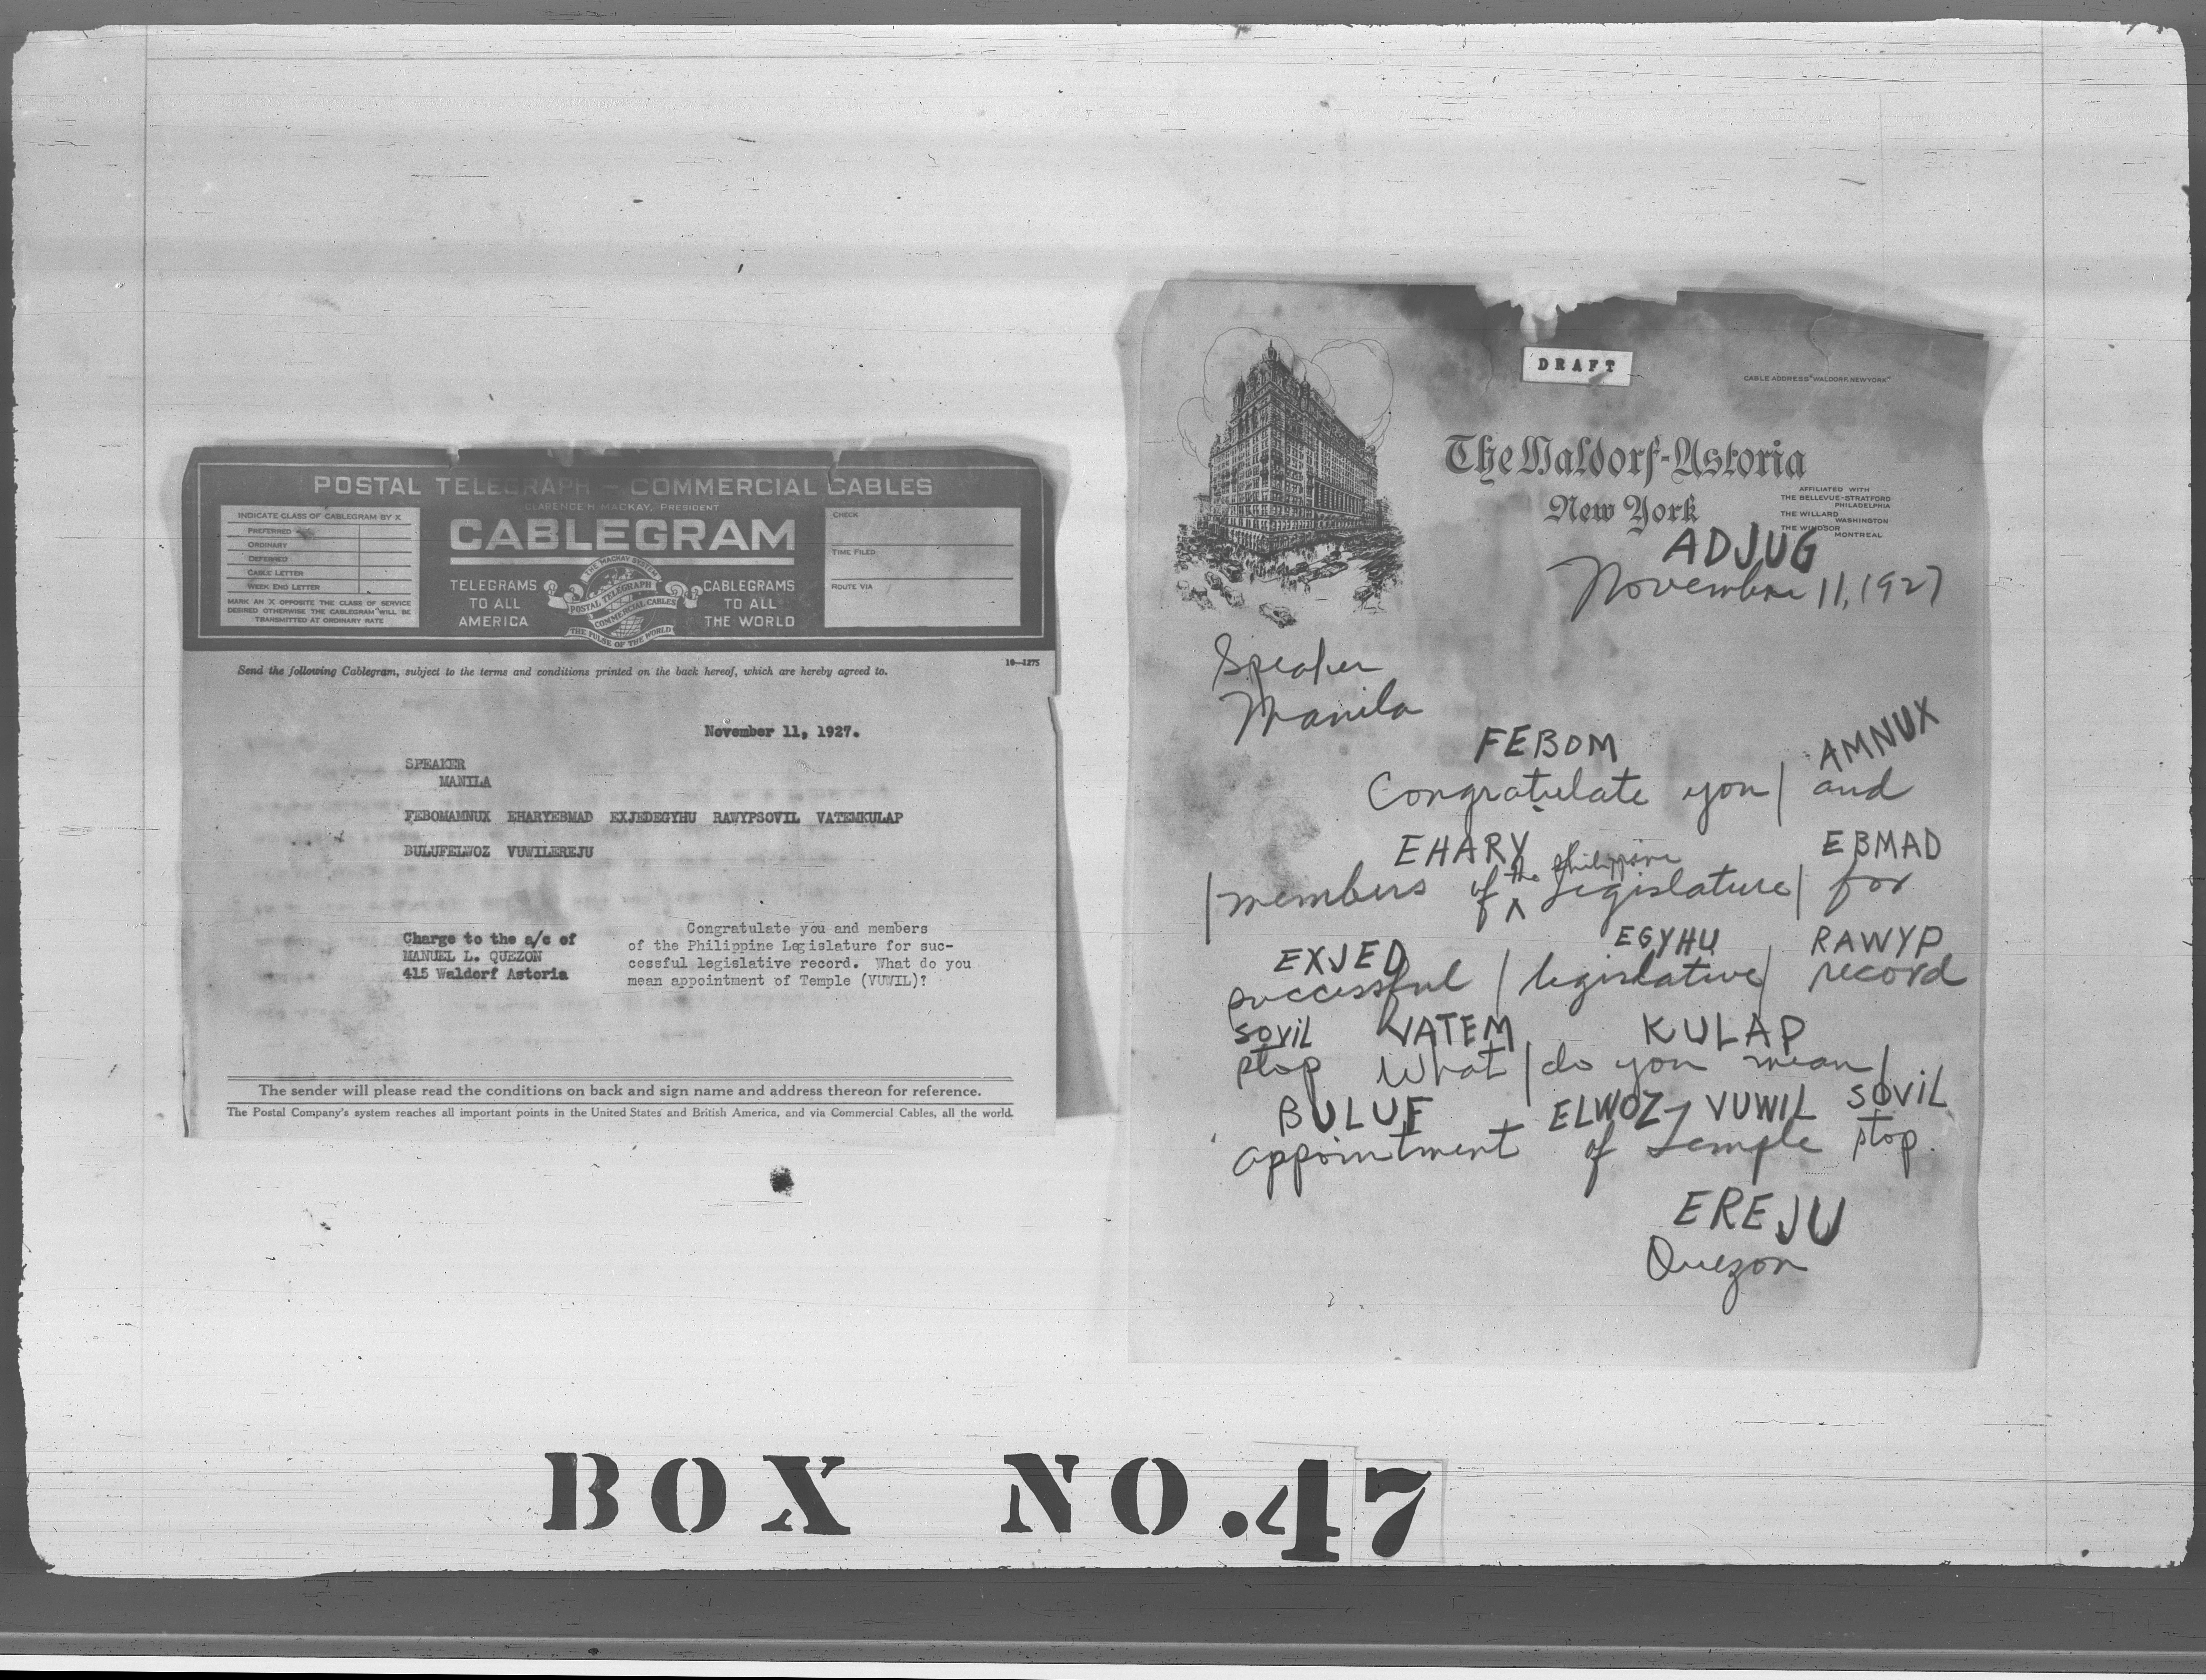 POSTAL TELEGRAPH - COMMERCIAL CABLES
CLARENCE H. MACKAY, PRESIDENT
INDICATE CLASS OF CABLEGRAM BY X
PREFERRED
ORDINARY
DEFERRED
CABLE LETTER
WEEK END LETTER
MARK AN X OPPOSITE THE CLASS OF SERVICE
DESIRED OTHERWISE THE CABLEGRAM WILL BE
TRANSMITTED AT ORDINARY RATE
CABLEGRAM
TELEGRAMS
TO ALL
AMERICA
THE MACKAY SYSTEM
POSTAL TELEGRAPH
COMMERCIAL CABLES
THE PULSE OF THE WORLD
CABLEGRAMS
TO ALL
THE WORLD
CHECK
TIME FILED
ROUTE VIA
Send the following Cablegram, subject to the terms and conditions printed on the back hereof, which are hereby agreed to.
16-1275
November 11, 1927.
SPEAKER
MANILA
FEBOMAMNUX EHARYEBMAD EXJEDEGYHU RAWYPSOVIL VATEMKULAP
BULUFELWOZ VUWILEREJU
Charge to the a/c of
MANUEL L. QUEZON
415 Waldorf Astoria
Congratulate you and members
of the Philippine Legislature for suc-
cessful legislative record. What do you
mean appointment of Temple (VUWIL)?
The sender will please read the conditions on back and sign name and address thereon for reference.
The Postal Company's system reaches all important points in the United States and British America, and via Commercial Cables, all the world.
DRAFT
CABLE ADDRESS "WALDORF, NEW YORK"
The Waldorf-Astoria
New York
AFFILIATED WITH
THE BELLEVUE-STRATFORD
PHILADELPHIA
THE WILLARD
WASHINGTON
THE WINDSOR
MONTREAL
ADJUG
November 11, 1927
Speaker
Manila
FEBOM AMNUX
Congratulate you | and
EHARY EBMAD
the Philippine
| members of ^ Legislature | for
EXJED EGYHU RAWYP
successful | legislative | record
SOVIL VATEM KULAP
stop What | do you mean |
BULUF ELWOZ VUWIL SOVIL
appointment of Temple stop.
EREJU
Quezon
BOX NO. 47